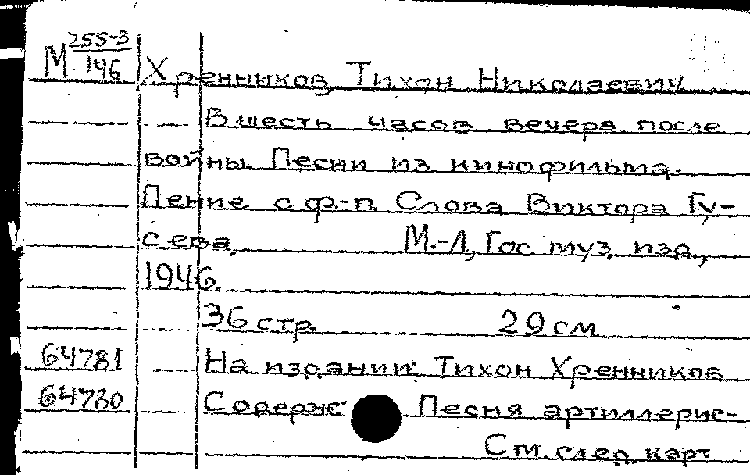 М 255-3/146 Хренников Тихон Николаевич
В шесть часов вечера после
войны. Песни из кинофильма.
Пение с ф-п. Слова Виктора Гу-
сева. М.-Л., Гос. муз. изд.,
1946.
36 стр. 29 см
64781 На издании: Тихон Хренников
64780 Содерж: Песня артиллерис-
См. след. карт.